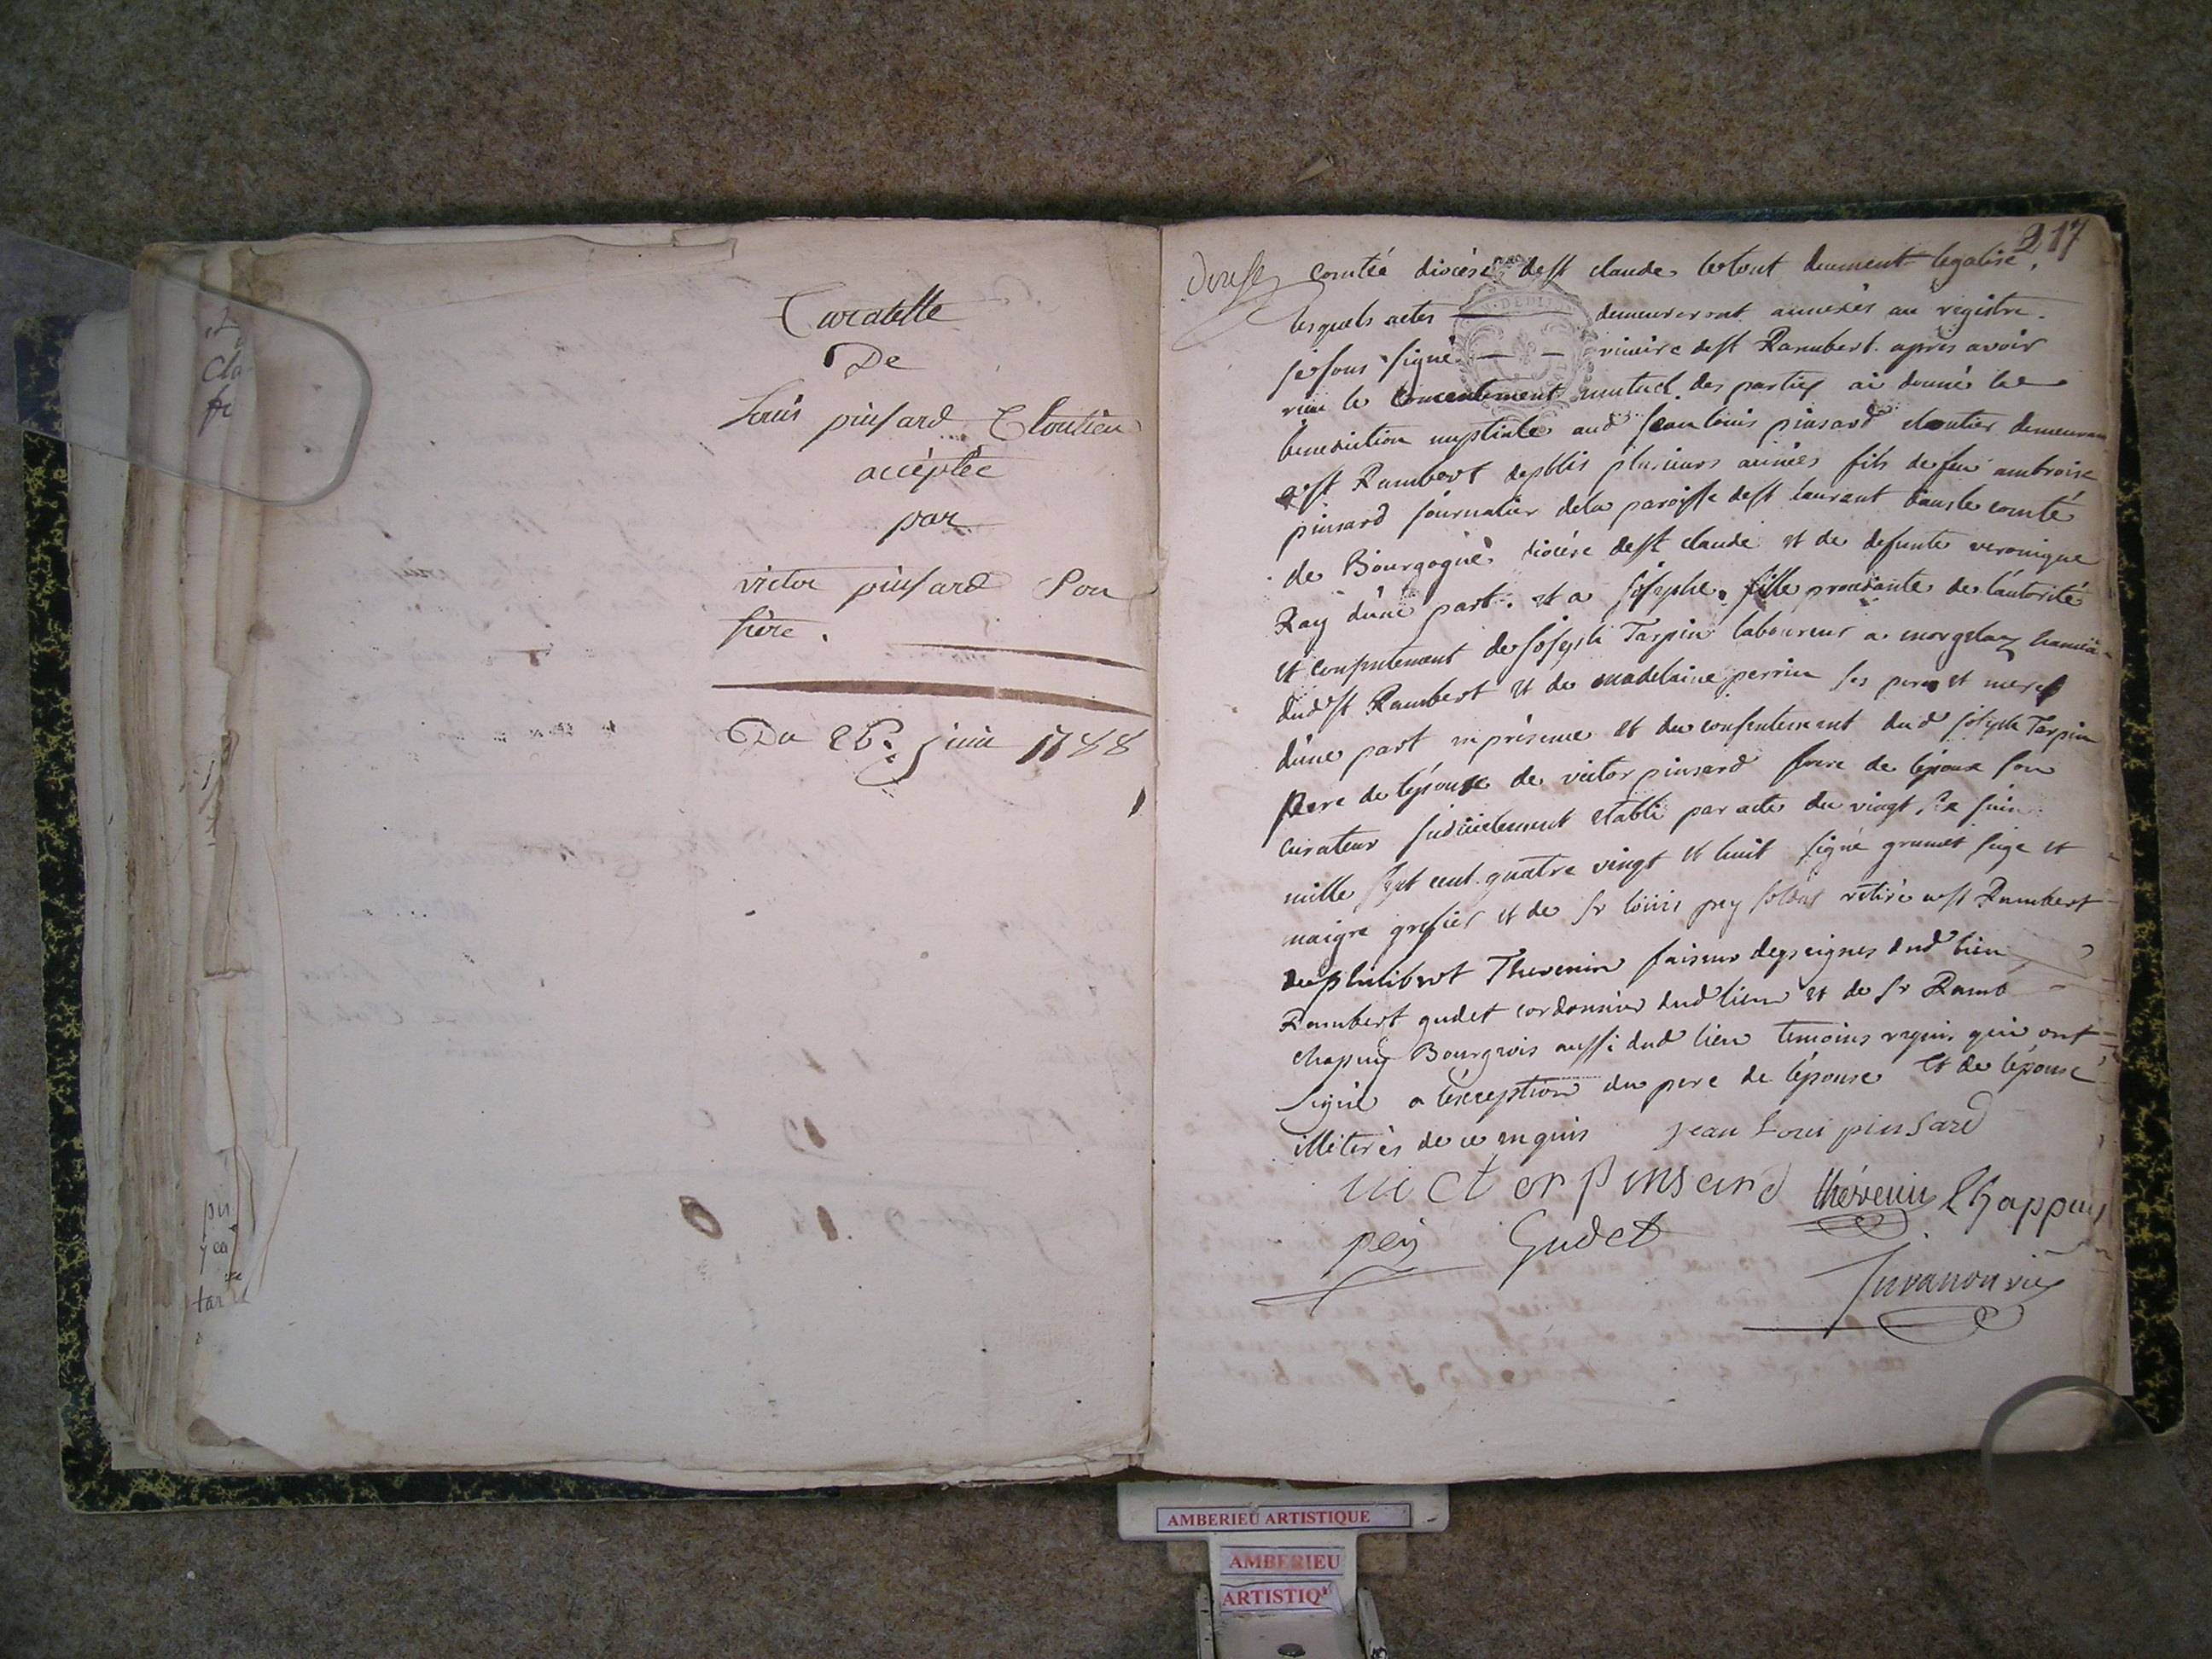 Curatelle
De
Louis pinsard Cloutier
acceptée
par
victor pinsard Son
frere.
Du 26: juin 1788
217
comté diocese de st claude le tout duement legalisé,
lesquels actes demeureront annexés au registre.
je sous signé vicaire de st Rambert apres avoir
veu le consentement mutuel des parties ai donné la
benediction nuptiale aud jean louis pinsard cloutier demeurant
a st Rambert depuis plusieurs années fils de feu ambroise
pinsard journalier de la paroisse de st laurent dans le comté
de Bourgogne diocese de st claude et de defunte veronique
Ray d'une part. et a josephe fille procedante de l'autorité
et consentement de joseph Tarpin laboureur a morgelas hameau
dud st Rambert et de madelaine perrin ses pere et mere
d'une part en présence et du consentement dud joseph Tarpin
pere de l'épouse de victor pinsard frere de l'epoux son
curateur judicielement etabli par acte du vingt six juin
mille sept cent quatre vingt et huit signé grumet juge et
maigre grefier et de sr louis pey soldat retiré a st Rambert
de philibert Thevenin faiseur de peignes dud lieu
Rambert gudet cordonnier dud lieu et de sr Ramb
chapuy Bourgeois aussi dud lieu temoins requis qui ont
signé a l'exception du pere de l'épouse et de l'épouse
illiterés de ce enquis jean Loui pinsard
victor pinsard thévenin Chappuy
pey Gudet
Juvanon vic
AMBERIEU ARTISTIQUE
AMBERIEU
ARTISTIQ